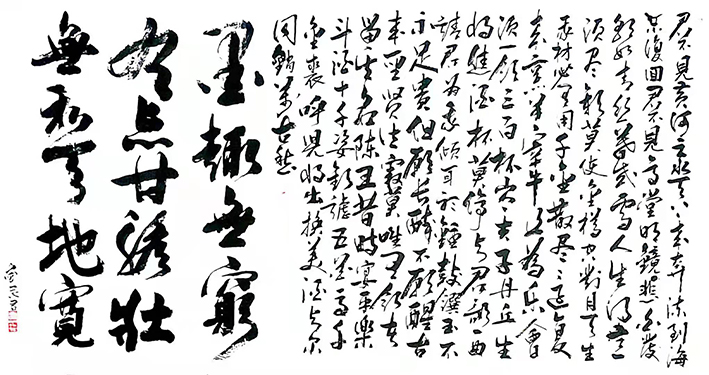 君不見黄河之水天上来奔流到海
不復回君不見高堂明鏡悲白发
朝如青丝暮成雪人生得意
須尽歡莫使金樽空對月天生
我材必有用千金散尽还复
来烹羊宰牛且為乐會
須一飲三百杯岑夫子丹丘生
将進酒杯莫停与君歌一曲
請君为我傾耳听鐘鼓饌玉不
足貴但願长醉不願醒古
来聖贤皆寂寞唯有飲者
留其名陈王昔時宴平樂
斗酒十千恣歡謔五花马千
金裘呼児将出换美酒与尔
同銷萬古愁
墨趣無窮
点甘壮
無私天地寬